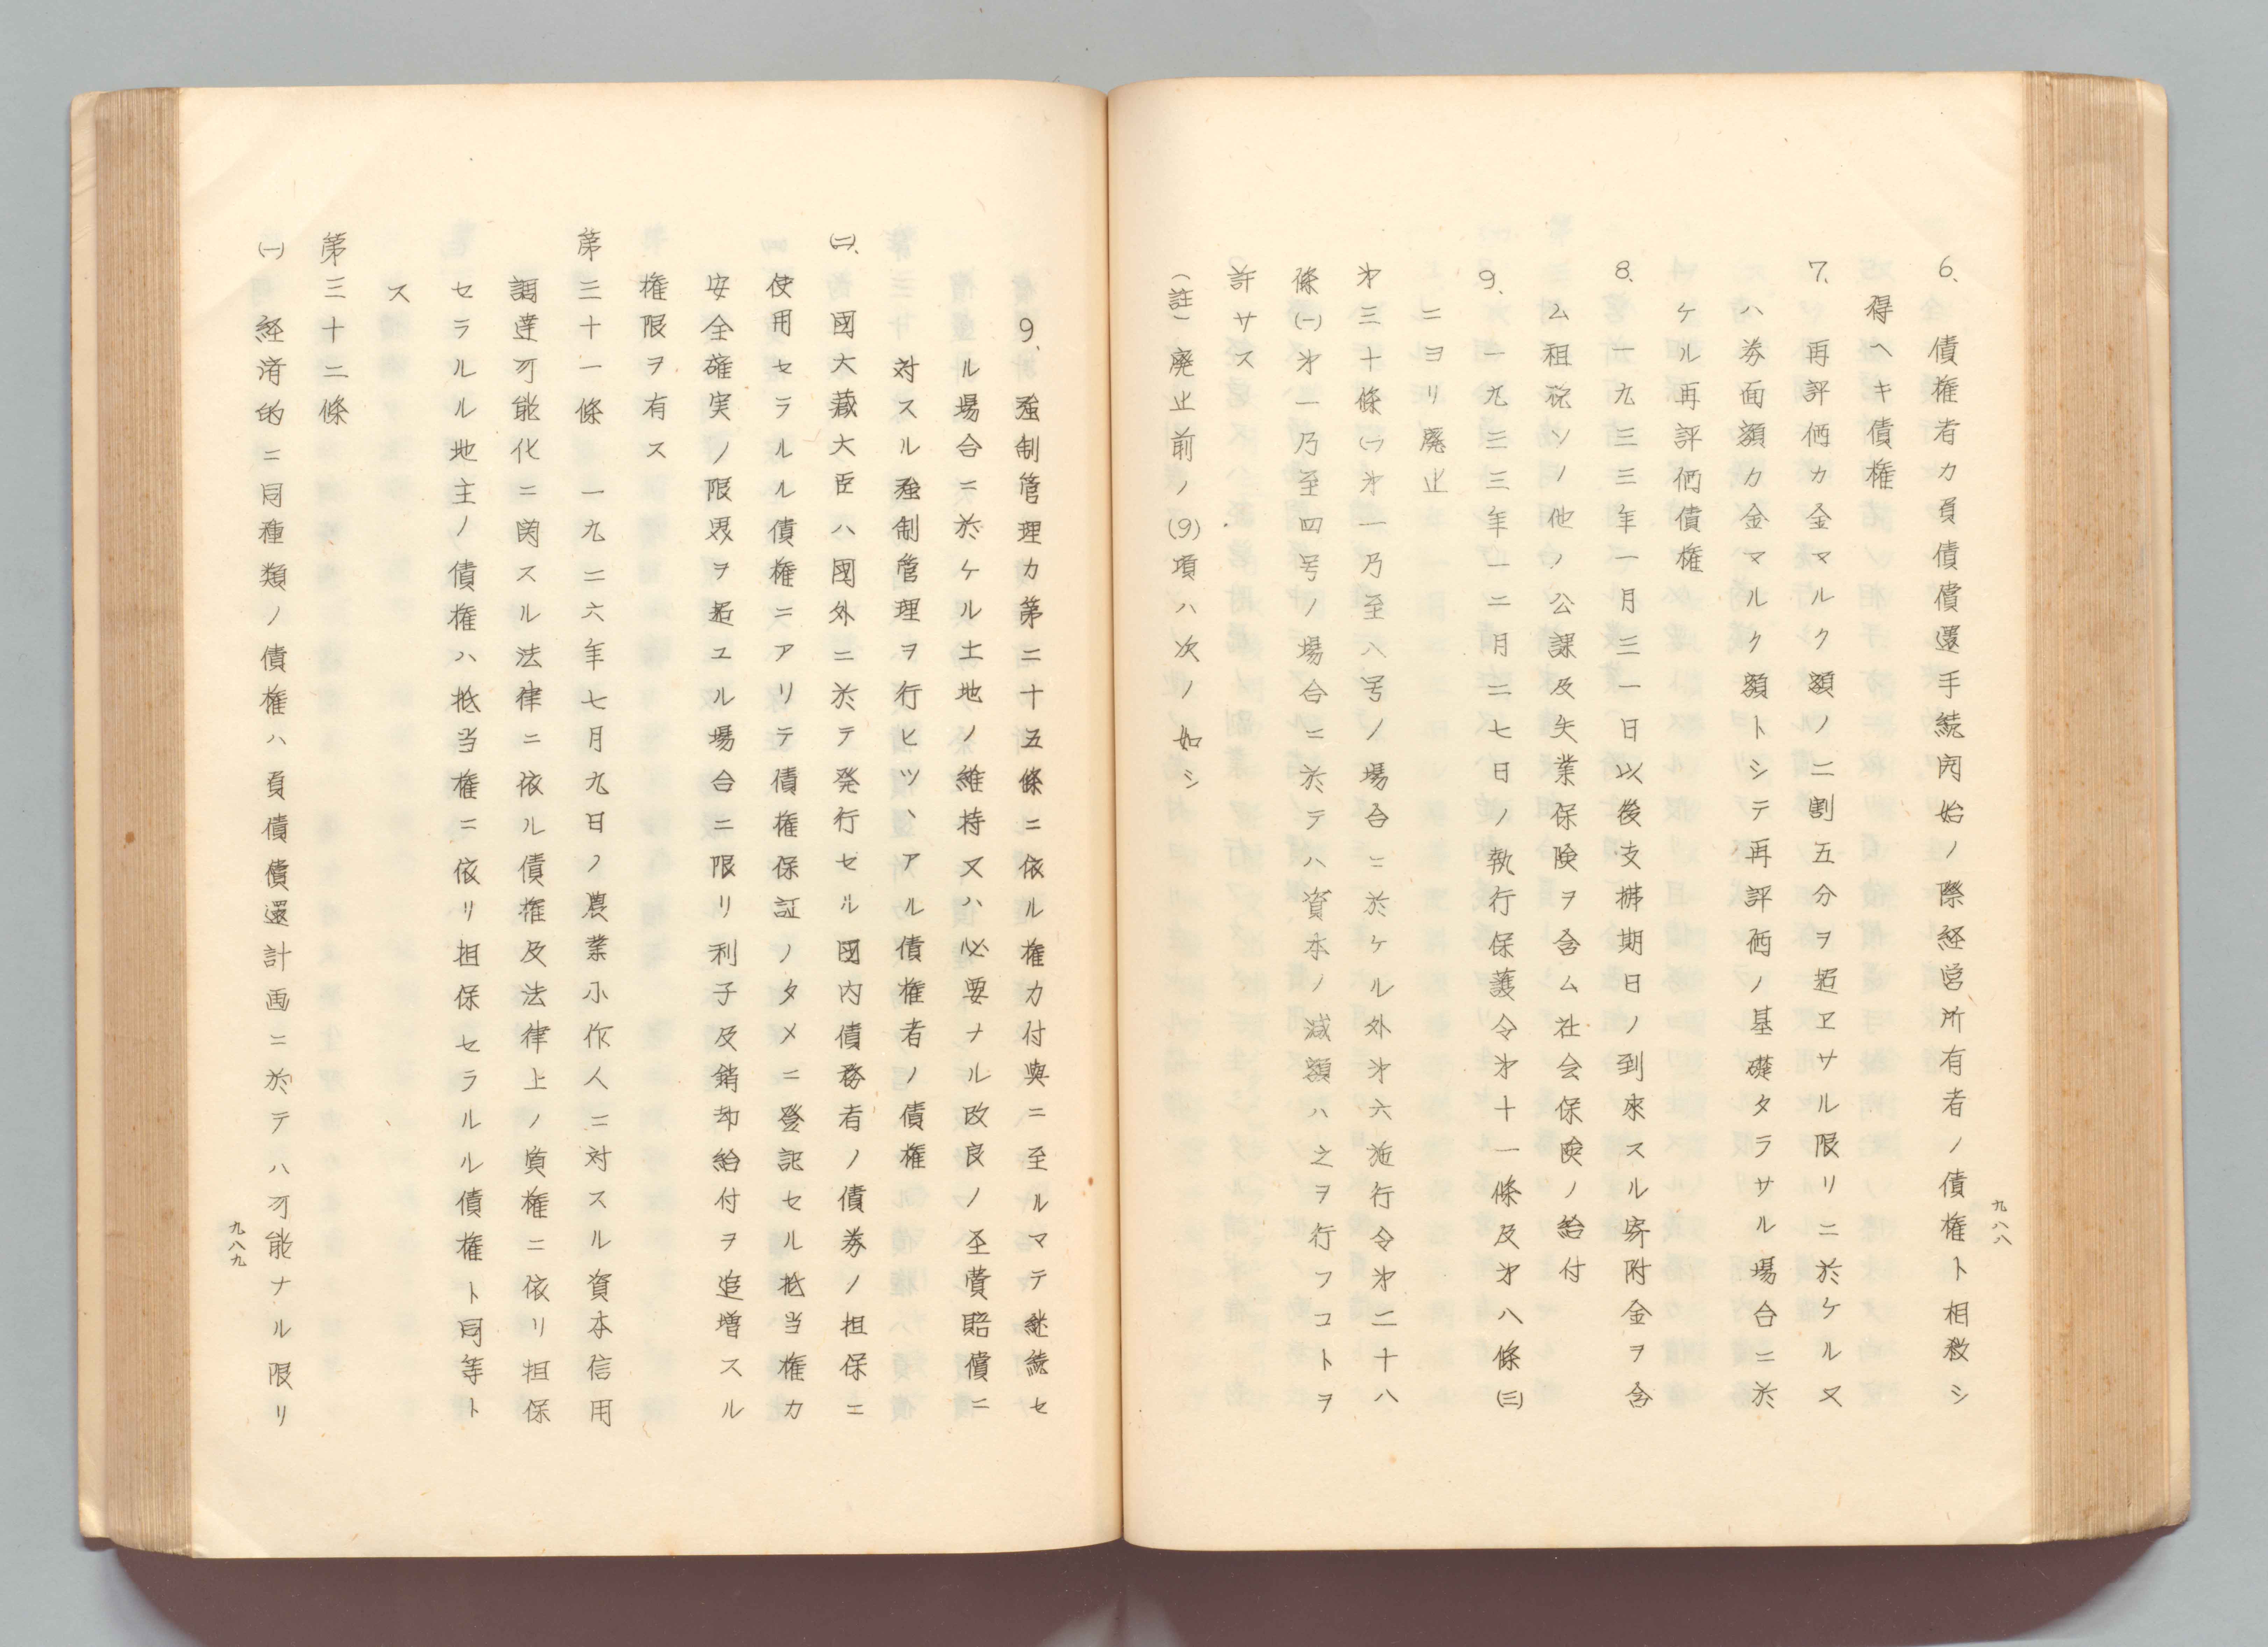 九八八
6、債権者カ負債償還手続開始ノ際経営所有者ノ債権ト相殺シ
得ヘキ債権
7、再評価カ金マルク額ノ二割五分ヲ超ヱサル限リニ於ケル又
ハ券面額カ金マルク額トシテ再評価ノ基礎タラサル場合ニ於
ケル再評価債権
8、一九三三年一月三一日以後支拂期日ノ到來スル寄附金ヲ含
ム租税ソノ他ノ公課及失業保険ヲ含ム社会保険ノ給付
9、一九三三年一二月二七日ノ執行保護令才十一條及才八條㈢
ニヨリ廃止
才三十條㈠才一乃至八号ノ場合ニ於ケル外才六施行令才二十八
條㈠才一乃至四号ノ場合ニ於テハ資本ノ減額ハ之ヲ行フコトヲ
許サス
(註)廃止前ノ(9)項ハ次ノ如シ
9、强制管理カ第二十五條ニ依ル権カ付與ニ至ルマテ継続セ
ル場合ニ於ケル土地ノ維持又ハ必要ナル改良ノ至費賠償ニ
対スル强制管理ヲ行ヒツヽアル債権者ノ債権
㈡、國大藏大臣ハ國外ニ於テ発行セル国内債務者ノ債券ノ担保ニ
使用セラルル債権ニアリテ債権保証ノタメニ登記セル抵当権カ
安全確実ノ限界ヲ超ユル場合ニ限リ利子及銷却給付ヲ追増スル
権限ヲ有ス
第三十一條 一九二六年七月九日ノ農業小作人ニ対スル資本信用
調達可能化ニ関スル法律ニ依ル債権及法律上ノ質権ニ依リ担保
セラルル地主ノ債権ハ抵当権ニ依リ担保セラルル債権ト同等ト
ス
第三十二條
㈠ 経済的ニ同種類ノ債権ハ負債償還計画ニ於テハ可能ナル限リ
九八九